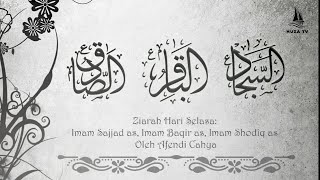 HUZA TV
السجاد الباقر الصادق
Ziarah Hari Selasa:
Imam Sajjad as, Imam Baqir as, Imam Shodiq as
Oleh Afendi Cahya